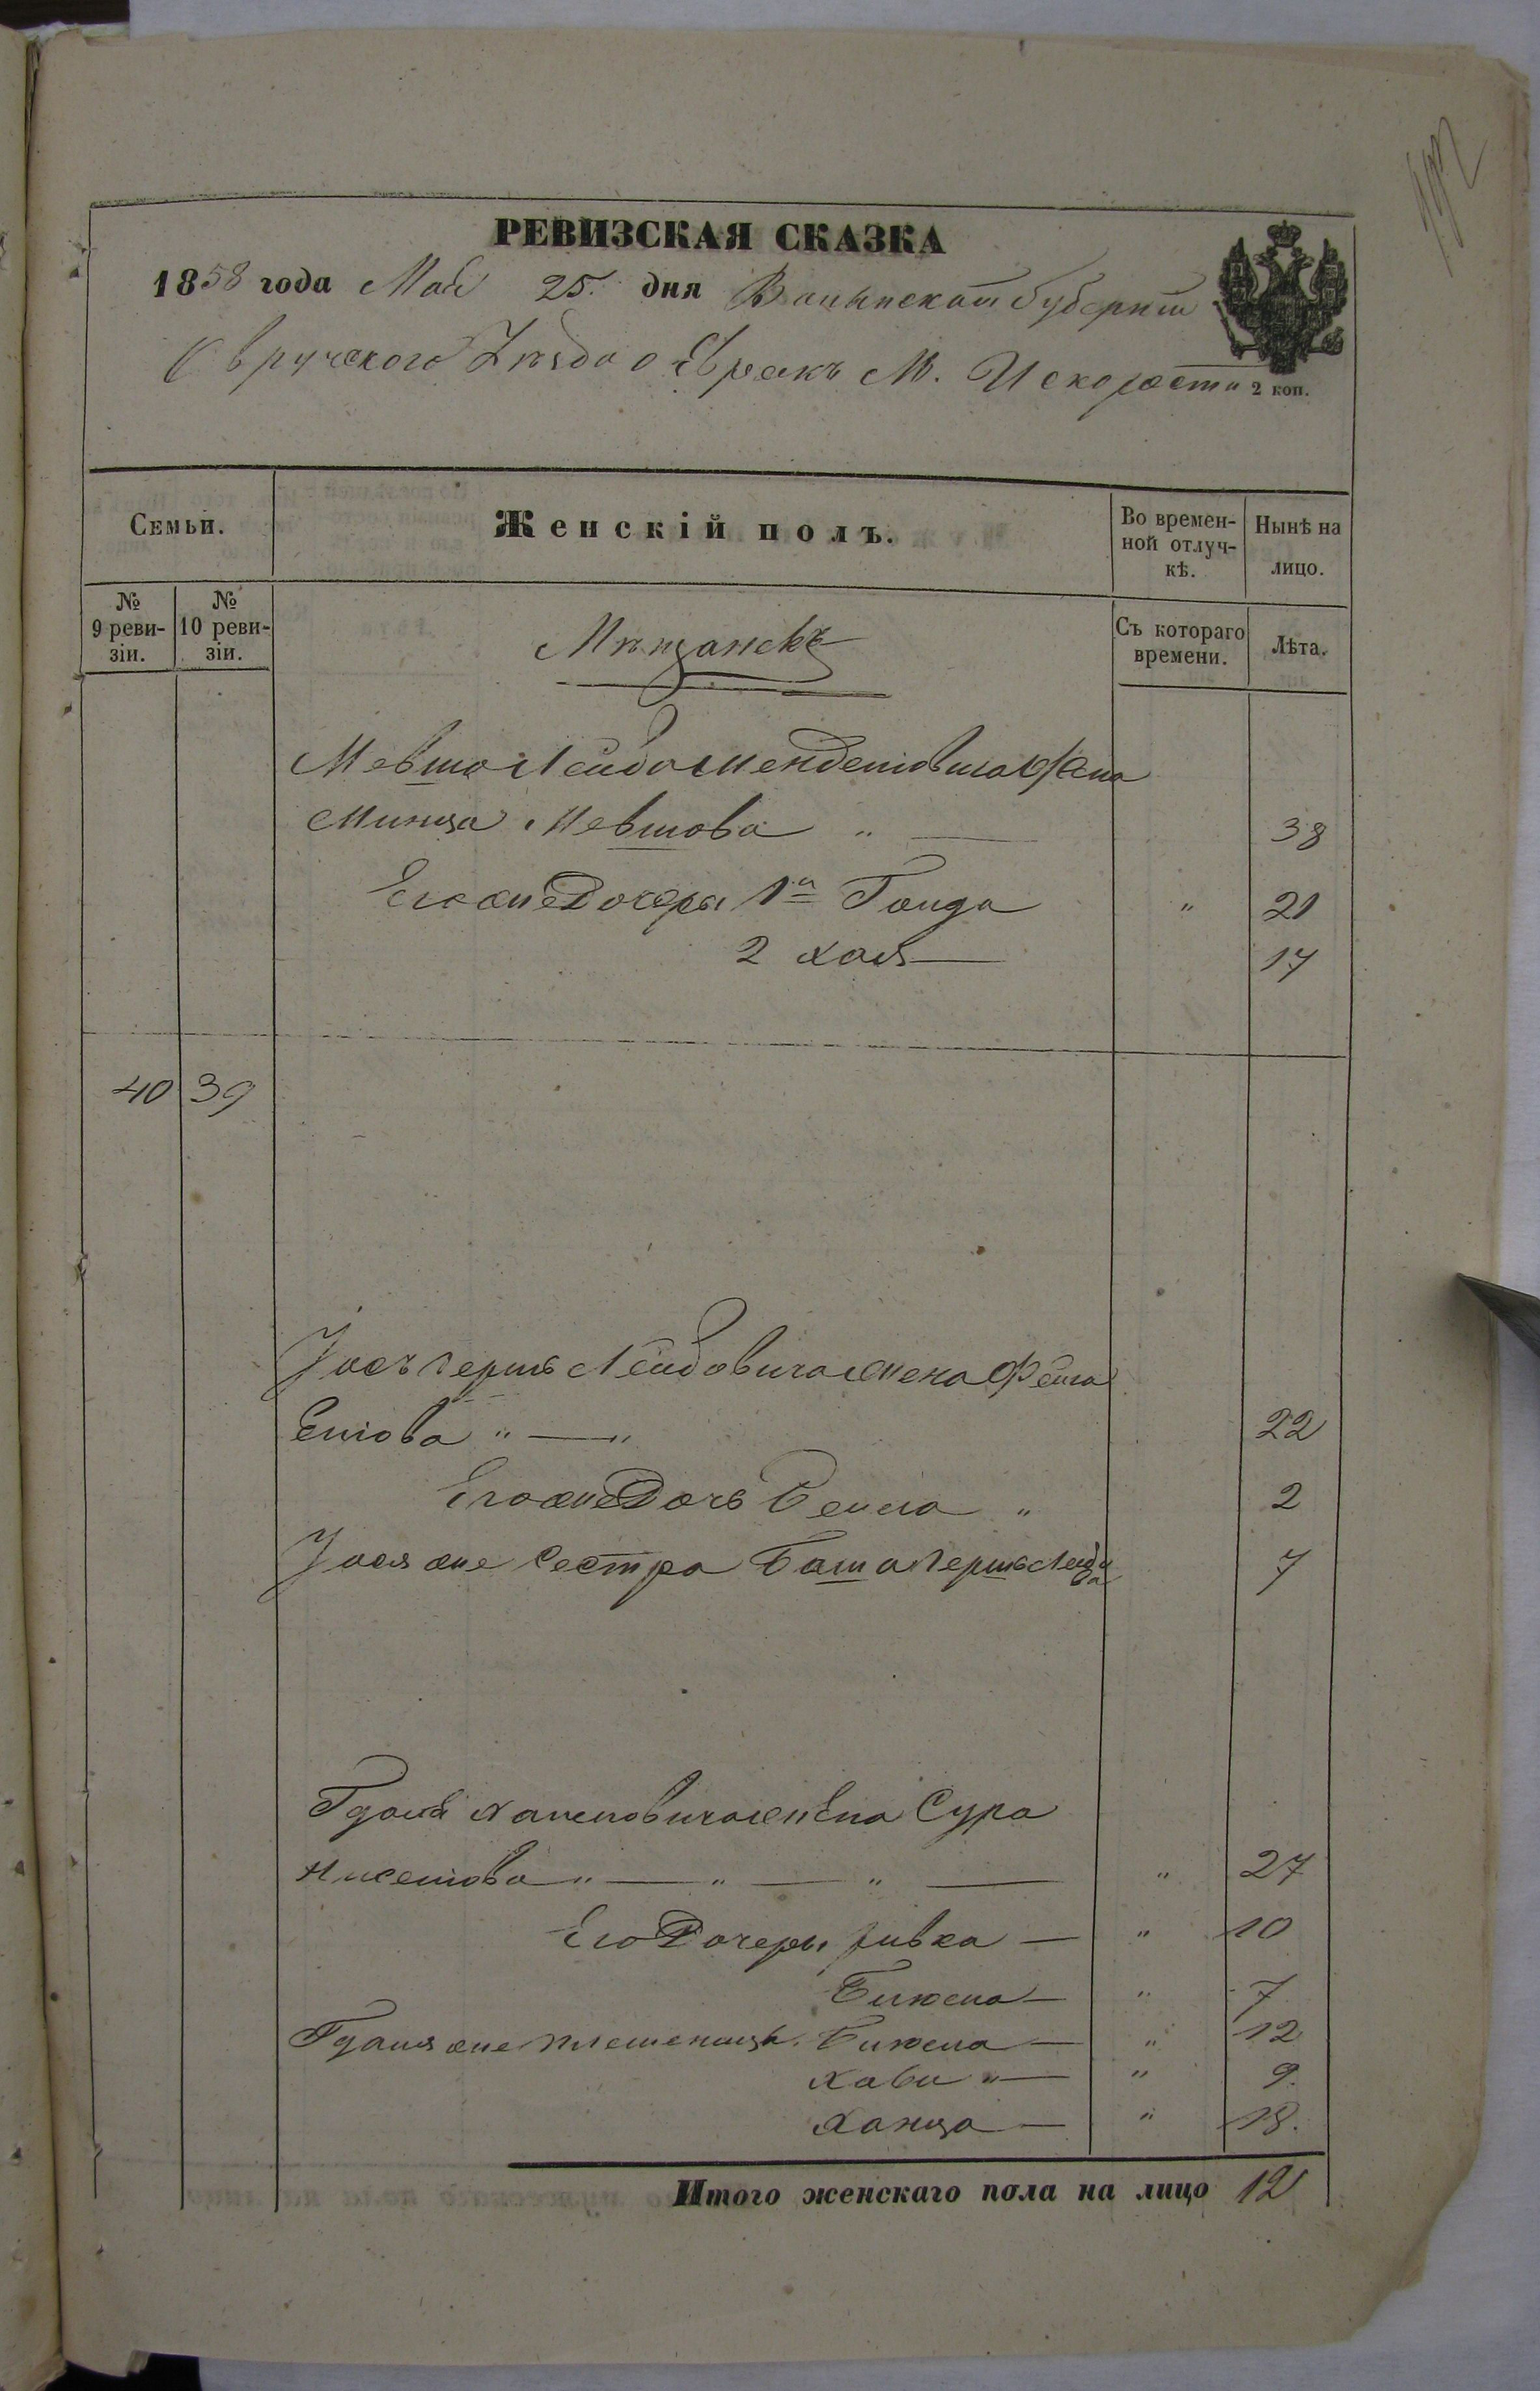 РЕВИЗСКАЯ СКАЗКА
1858 года Мая 25. дня Волынской Губерніи
Овручского Уезда о Евреяхъ М. Искорости
2 коп.
Семьи. Женскій полъ. Во времен-ной отлуч-кѣ. Нынѣ на лицо.
№ 9 реви-зіи. № 10 реви-зіи. Мѣщанскъ Съ котораго времени. Лѣта.
Мевша Лейбо Менделовича жена
Минца Мевшова " — 38
Егоже Дочери 1я Голда " 21
2 Хая — 17
40 39
Іосъ Герша Лейбовича жена Фейга
" — " 22
Егоже Дочь Бейла " 2
Іося же Сестра Баша Герша Лейбо 7
жена Сура
" — " — " — " 27
Его Дочери Ривка — " 10
— " 7
же племеница. — " 12
Хава " — " 9.
Ханца — " 18.
Итого женскаго пола на лицо 12